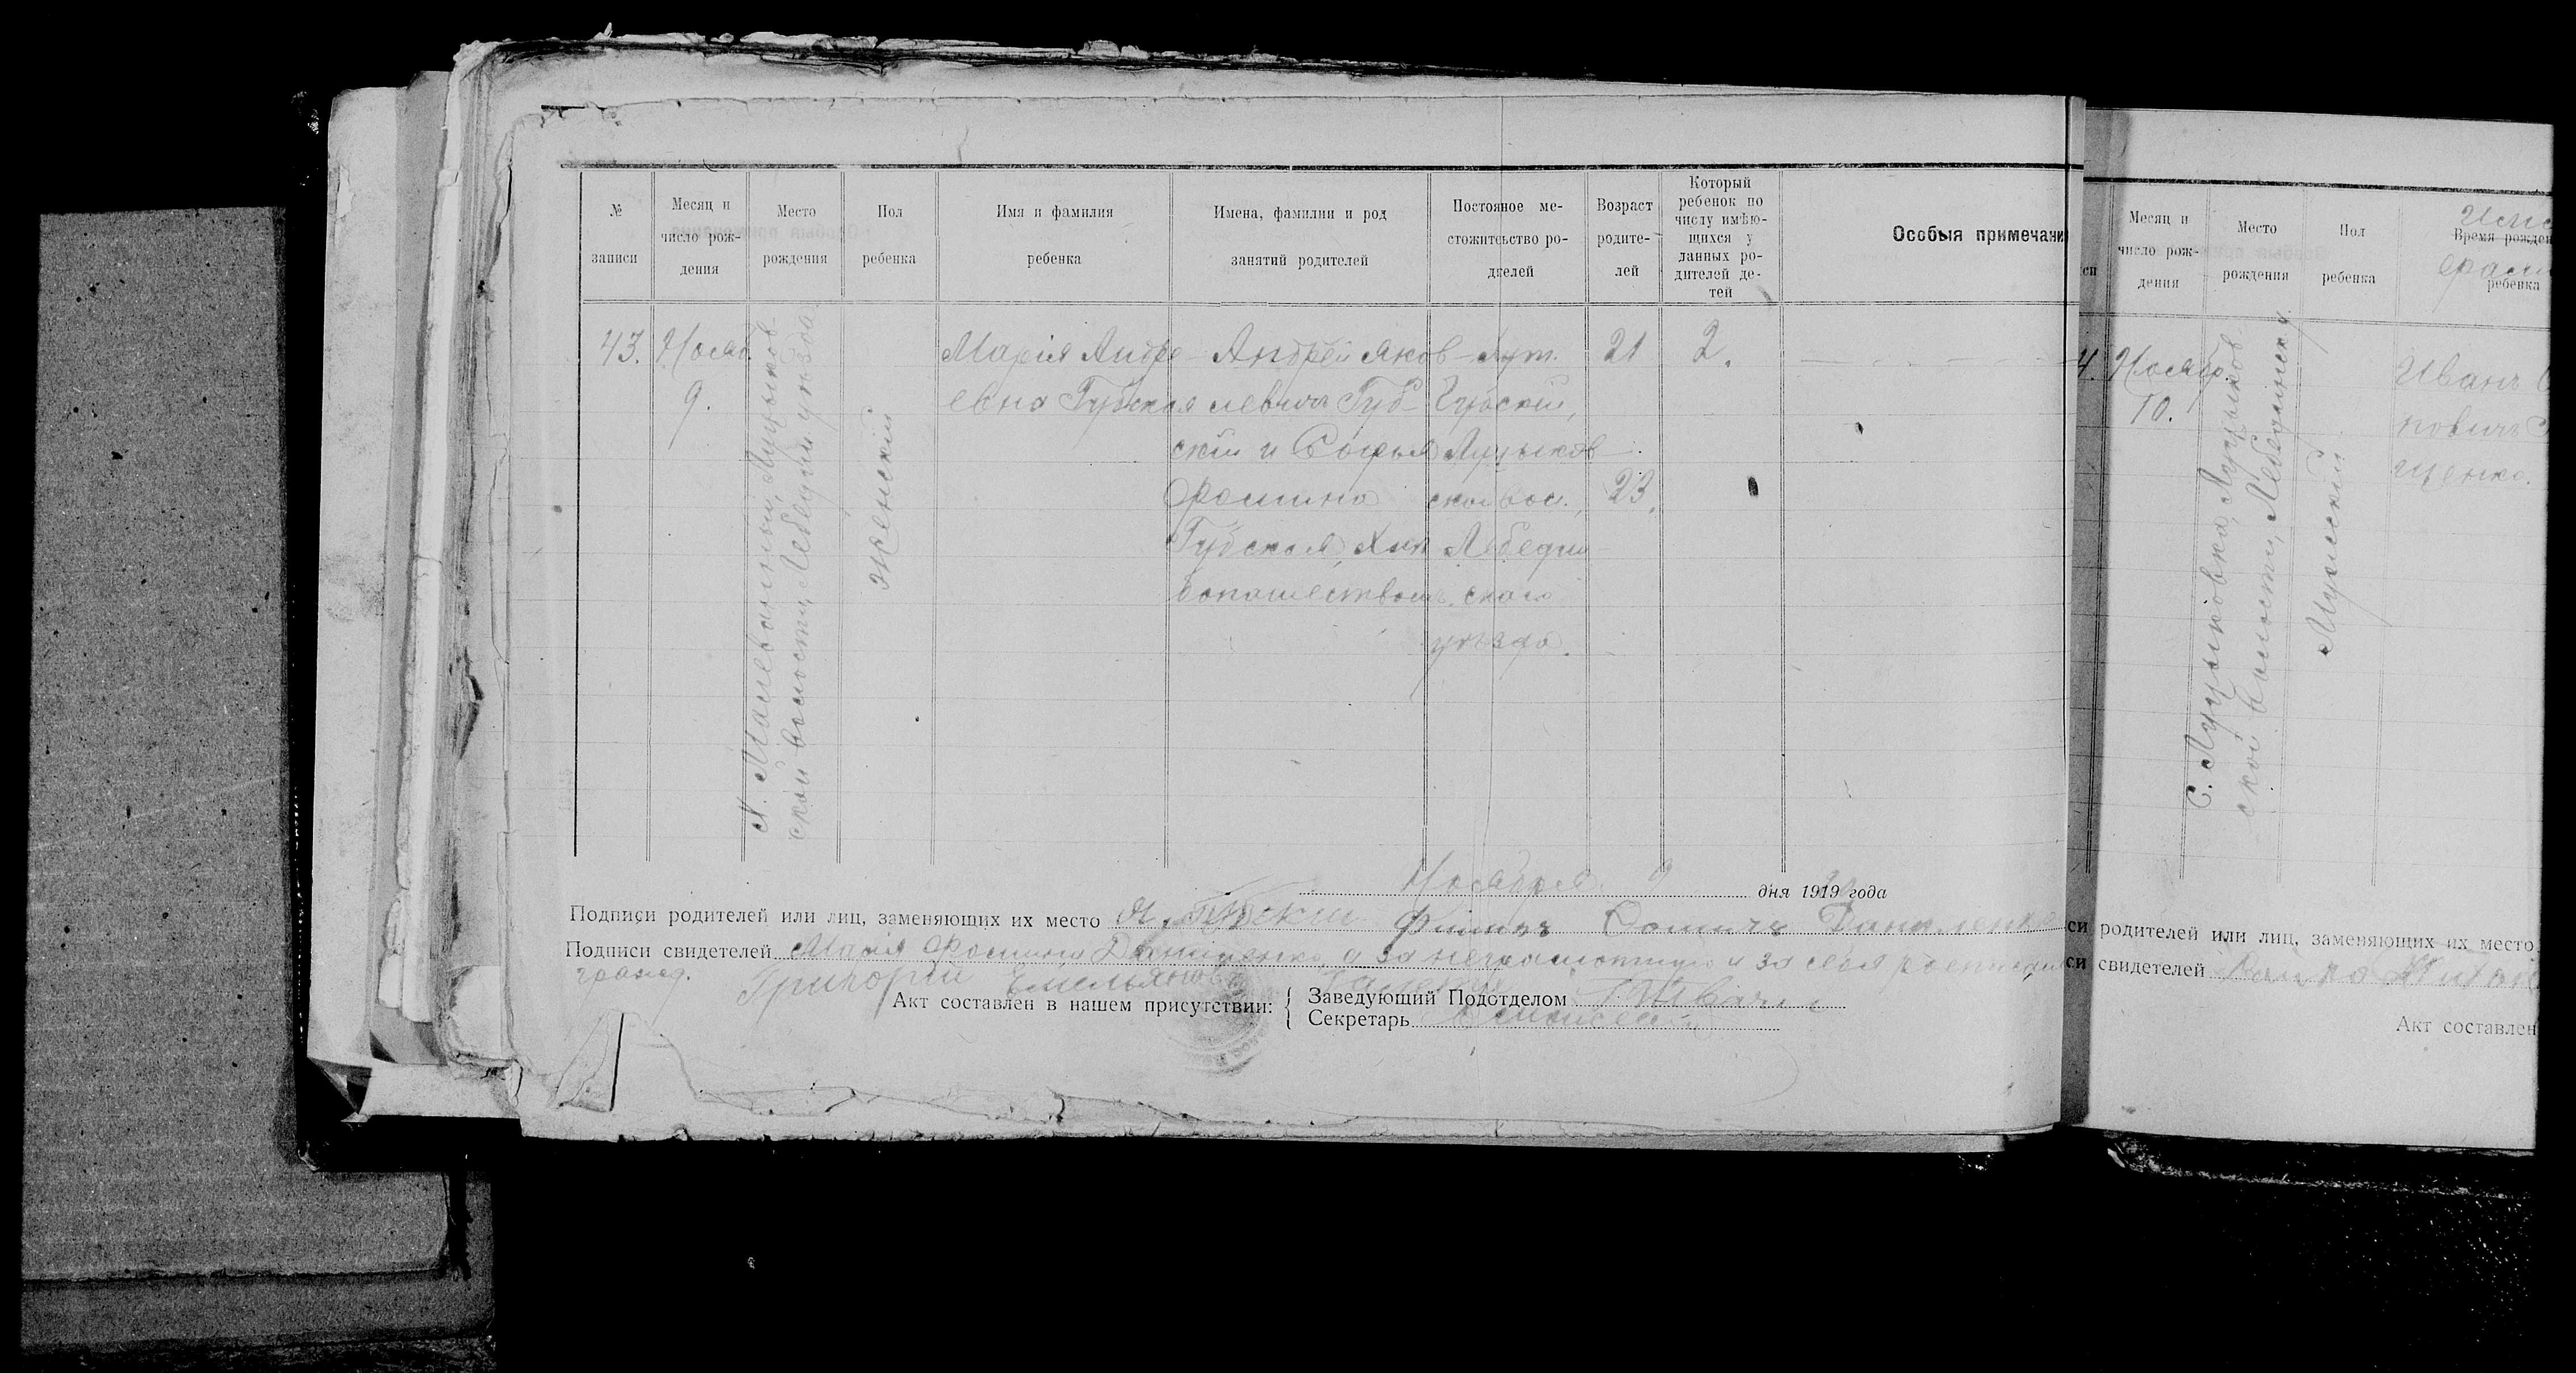 № записи
Месяц и число рождения
Место рождения
Пол ребенка
Имя и фамилия ребенка
Имена, фамилии и род занятий родителей
Постояное местожительство родителей
Возраст родителей
Который ребенок по числу имѣющихся у данных родителей детей
Особыя примечани
43.
Нояб.
9.
Луцыков-
ской волости, Лебедин уѣзда
женский
Марія Андре-
евна Губская
Андрей Яков-
левичъ Губ-
скій и Софья
Фомина
Губская, Хлѣ
бопашествомъ.
Хут.
Губскій,
Луцыков-
ской вол.,
Лебедин-
скаго
уѣзда.
21
23.
2.
Ноября 9 дня 1919 года
Подписи родителей или лиц, заменяющих их место Губский
Подписи свидетелей Марія Фомина Даниленко, а за неграмотную и за себя
гражд. Григорий Емельянов
Акт составлен в нашем присутствии:
Заведующий Подотделом
Секретарь
си
Месяц и число рождения
Место рождения
Пол ребенка
Время рожден
ребенка
4.
Нояб.
10.
С. Луцыковка, Луцыков-
ской волости, Лебединск. у.
Мужской
Иванъ
повичъ
щенко.
си родителей или лиц, заменяющих их место
си свидетелей
Акт составлен